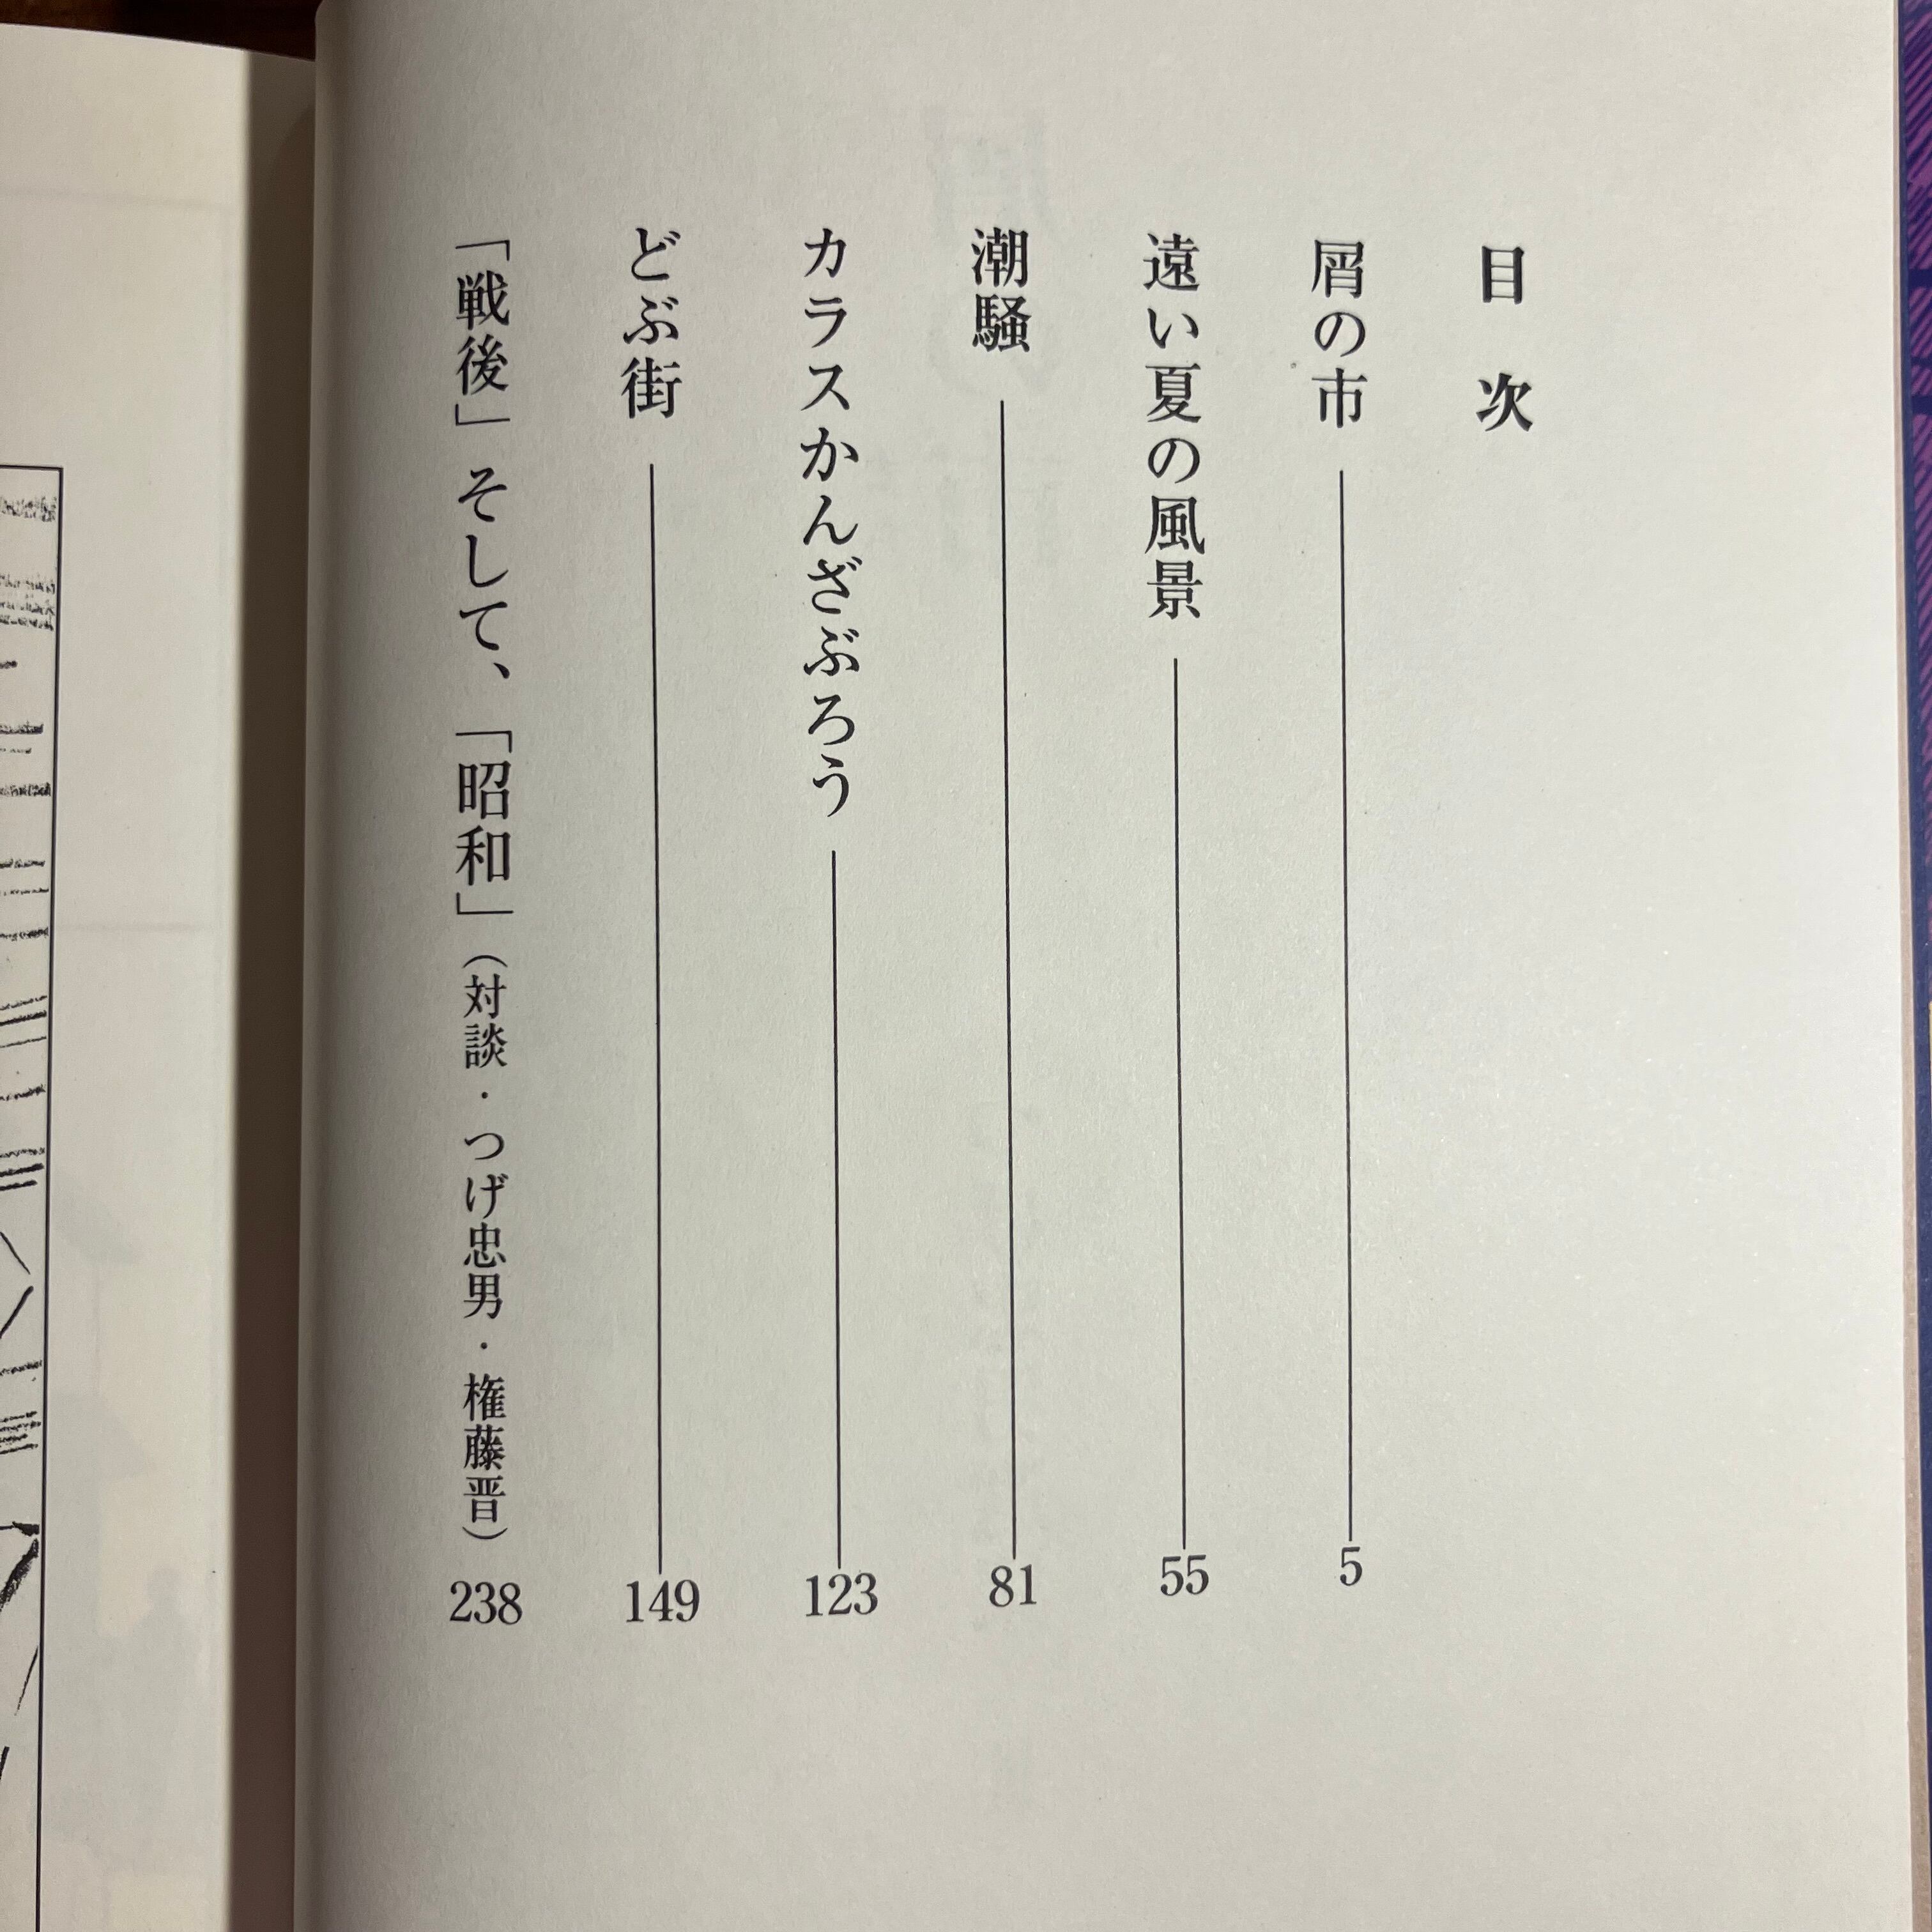 目次
屑の市 5
遠い夏の風景 55
潮騒 81
カラスかんざぶろう 123
どぶ街 149
「戦後」そして、「昭和」(対談・つげ忠男・権藤晋) 238